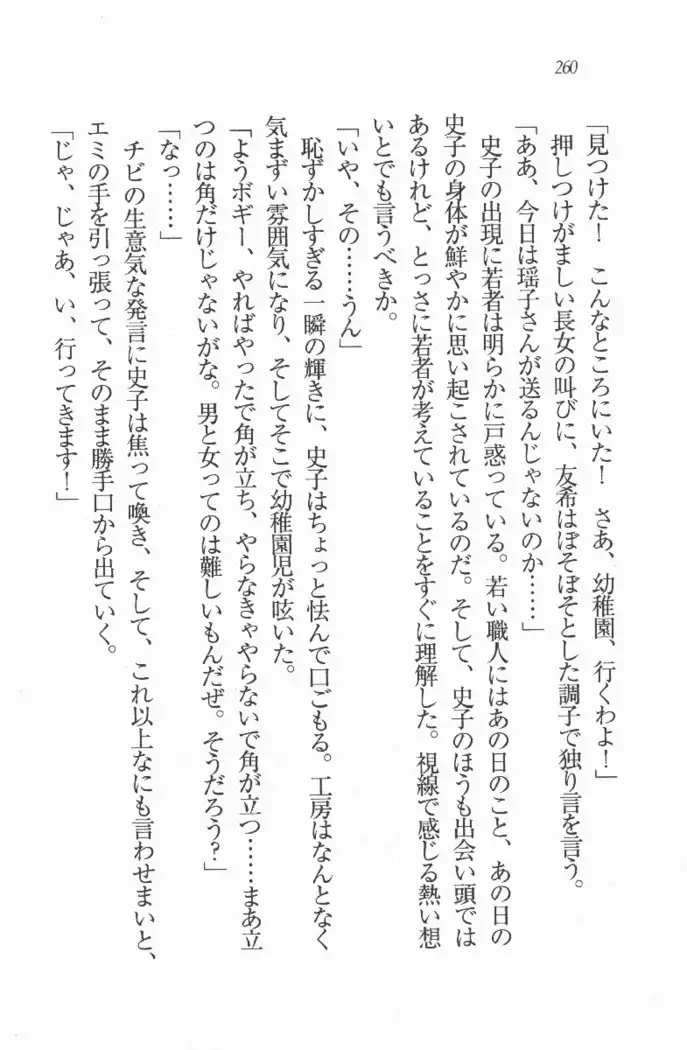 260
「見つけた！　こんなところにいた！　さあ、幼稚園、行くわよ！」
押しつけがましい長女の叫びに、友希はぼそぼそとした調子で独り言を言う。
「ああ、今日は瑶子さんが送るんじゃないのか……」
史子の出現に若者は明らかに戸惑っている。若い職人にはあの日のこと、あの日の
史子の身体が鮮やかに思い起こされているのだ。そして、史子のほうも出会い頭では
あるけれど、とっさに若者が考えていることをすぐに理解した。視線で感じる熱い想
いとでも言うべきか。
「いや、その……うん」
恥ずかしすぎる一瞬の輝きに、史子はちょっと怯んで口ごもる。工房はなんとなく
気まずい雰囲気になり、そしてそこで幼稚園児が呟いた。
「ようボギー、やればやったで角が立ち、やらなきゃやらないで角が立つ……まあ立
つのは角だけじゃないがな。男と女ってのは難しいもんだぜ。そうだろう？」
「なっ……」
チビの生意気な発言に史子は焦って喚き、そして、これ以上なにも言わせまいと、
エミの手を引っ張って、そのまま勝手口から出ていく。
「じゃ、じゃあ、い、行ってきます！」